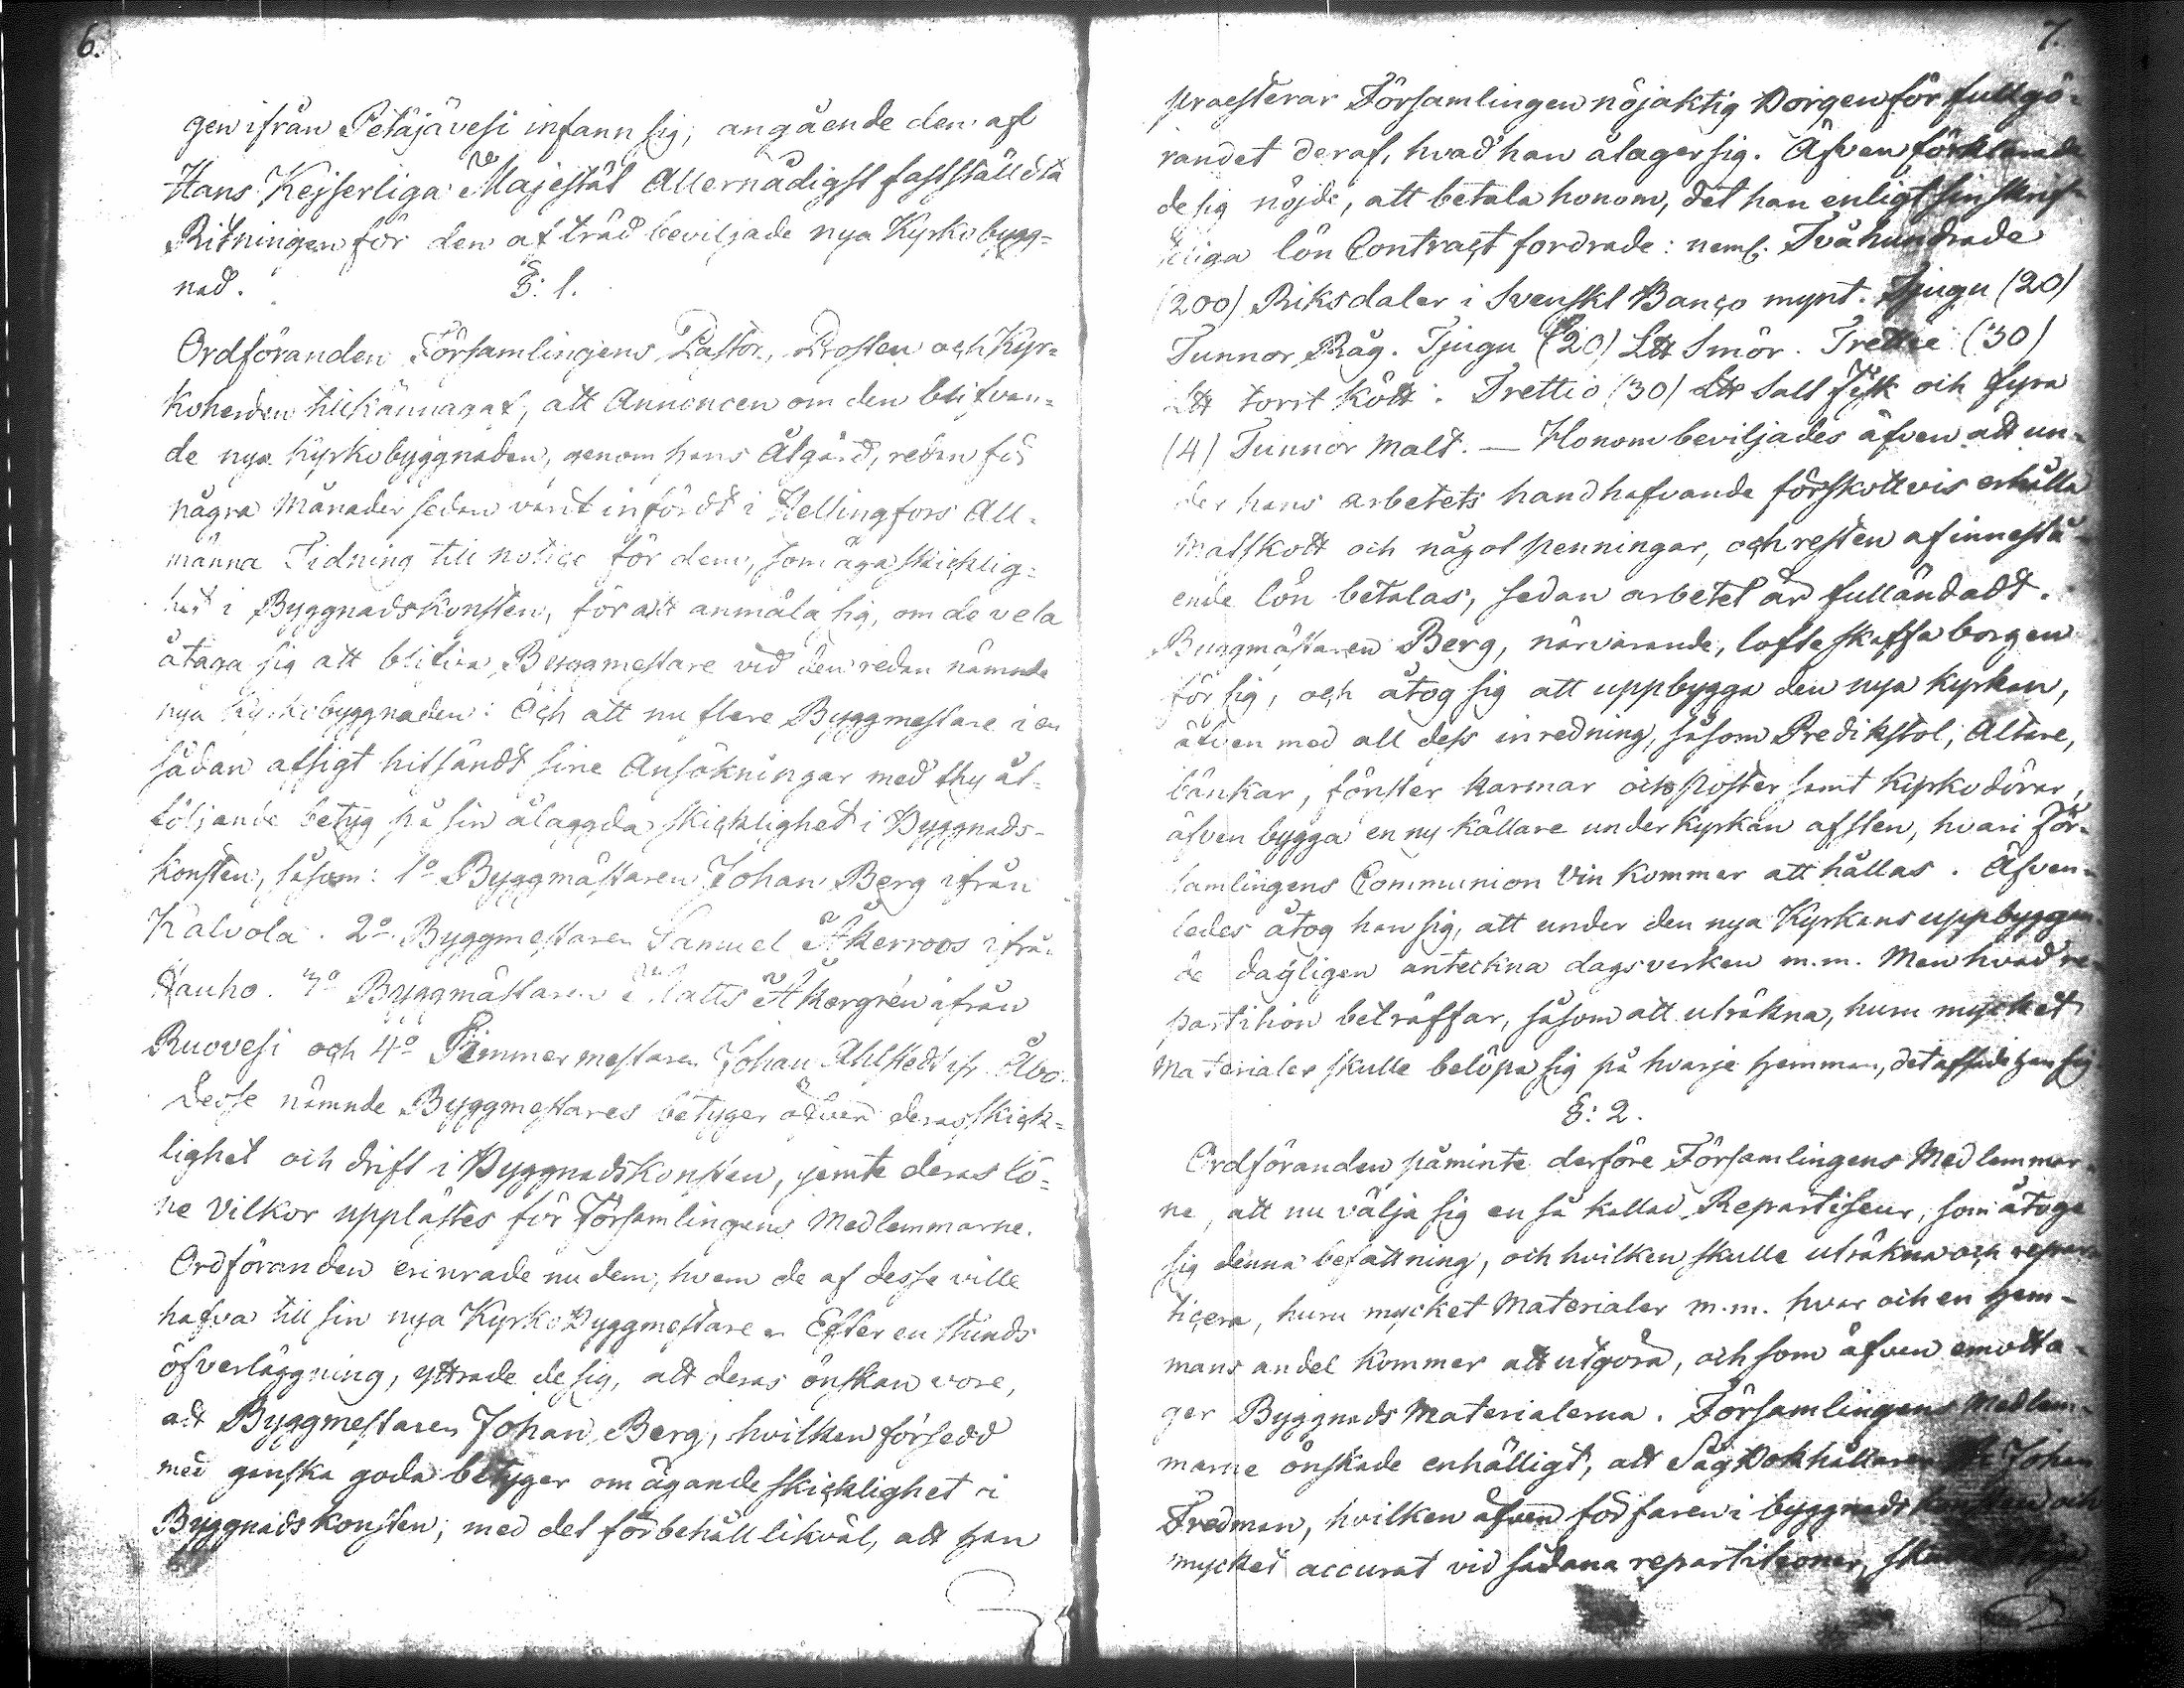 6.
gen ifrån Petäjävesi infann sig, angående den af
Hans Kejserliga Majestät Allernådigst fastställdta
Ritningen för den af träd beviljade nya Kyrkobygg=
nad.
§: 1.
Ordföranden Församlingens Pastor, Prosten och Kyr=
koherden tillkännagaf, att Annoncen om den blifvan=
de nya Kyrkobyggnaden, genom hans Åtgärd, redan för
några Månader sedan varit infördt i Hellingfors All=
männa Tidning till notice för dem, som äga skicklig=
het i Byggnadskonsten, för att anmäla sig, om de vela
åtaga sig att blifva Byggmestare vid den redan nämnde
nya Kyrkobyggnaden: Och att nu flere Byggmestare i en
sådan afsigt hitsändt sine Ansökningar med thy åt=
följande betyg på sin ålaggda skicklighet i Byggnads=
konsten, såsom: 1o Byggmästaren Johan Berg ifrån
Kalvola. 2o Byggmestaren Samuel Åkerroos ifrån
Hauho. 3o Byggmästaren Matts Åkergrén ifrån
Ruovesi och 4o Timmermestaren Johan Ahlstedt ifr. Åbo.
Desse nämnde Byggmestares betyger öfver deras skick=
lighet och drift i Byggnadskonsten, jemte deras lö=
ne Vilkor upplästes för Församlingens Medlemmarne.
Ordföranden erinrade nu dem, hvem de af desse ville
hafva till sin nya Kyrko Byggmestare. Efter en stunds
öfverläggning, yttrade de sig, att deras önskan vore,
att Byggmestaren Johan Berg, hvilken försedd
med ganska goda betyger om ägande skicklighet i
Byggnadskonsten; med det förbehåll likväl, att han
7.
praesterar Församlingen nöjaktig Borgen för fullgö=
randet deraf, hvad han ålager sig. Äfven förklarade
de sig nöjde, att betala honom, det han enligt sin skrif=
teliga lön Contract fordrade: neml. Tvåhundrade
(200) Riksdaler i Svenskt Banco mynt. Tjugu (20)
Tunnor Råg. Tjugu (20) L℔ Smör. Trettie (30)
L℔ torrt Kött. Trettio (30) L℔ Salt fisk och fyra
(4) Tunnor Malt. — Honom beviljades äfven att un=
der hans arbetets handhafvande förskottvis erhålla
Matskott och något penningar, och resten af innestå=
ende lön betalas, sedan arbetet är fulländadt.
Byggmästaren Berg, närvarande, lofte skaffa borgen
för sig, och åtog sig att uppbygga den nya Kyrkan,
äfven med all dess inredning, såsom Predikstol, Altare,
bänkar, fönster karmar och poster samt Kyrkodörar,
äfven bygga en ny källare under kyrkan af sten, hvari För=
samlingens Communion Vin kommer att hållas. Äfven=
ledes åtog han sig, att under den nya Kyrkans uppbyggan=
de dagligen anteckna dagsverken m.m. Men hvad re=
partition beträffar, såsom att uträkna, huru mycket
Materialer skulle belöpa sig på hvarje hemman, det afsade han sig
§: 2.
Ordföranden påminte derföre Församlingens Medlemmar=
ne, att nu välja sig en så kallad Repartiseur, som åtoge
sig denna befattning, och hvilken skulle uträkna och repar=
ticera, huru mycket Materialer m.m. hvar och en hem=
mans andel kommer att utgöra, och som äfven emotta=
ger Byggnads Materialerna. Församlingens Medlem=
marne önskade enhälligt, att Såg Bokhållaren Johan
Fredman, hvilken äfven förfaren i byggnadskonsten och
mycket accurat vid sådana repartitioner,